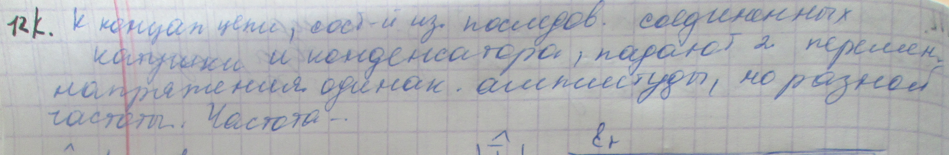 12к. К концам цепи, сост-й из послед​ов. соединенных
катушки и конденсатора, подают 2 перемен.
напряжения одинак. амплитуды, но разной
частоты. Частота ...
Er